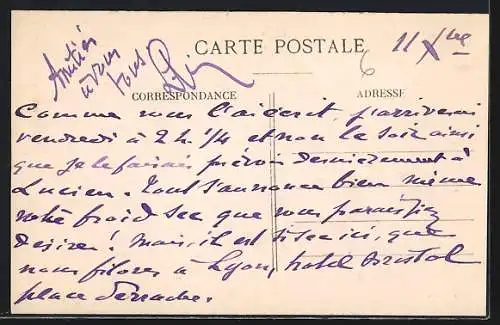 Amitiés
à vous
tous
CARTE POSTALE
11 Xbre
6
CORRESPONDANCE
ADRESSE
Comme vous l'ai écrit, j'arriverai
vendredi à 2 h. 1/4 et non le soir ainsi
que je le faisais prévoir dernièrement à
Lucien. Tout s'annonce bien même
notre froid sec que vous paraissiez
désirer! Mais, il est si sec ici, que
nous filons à Lyon, hotel Bristol
place Perrache.